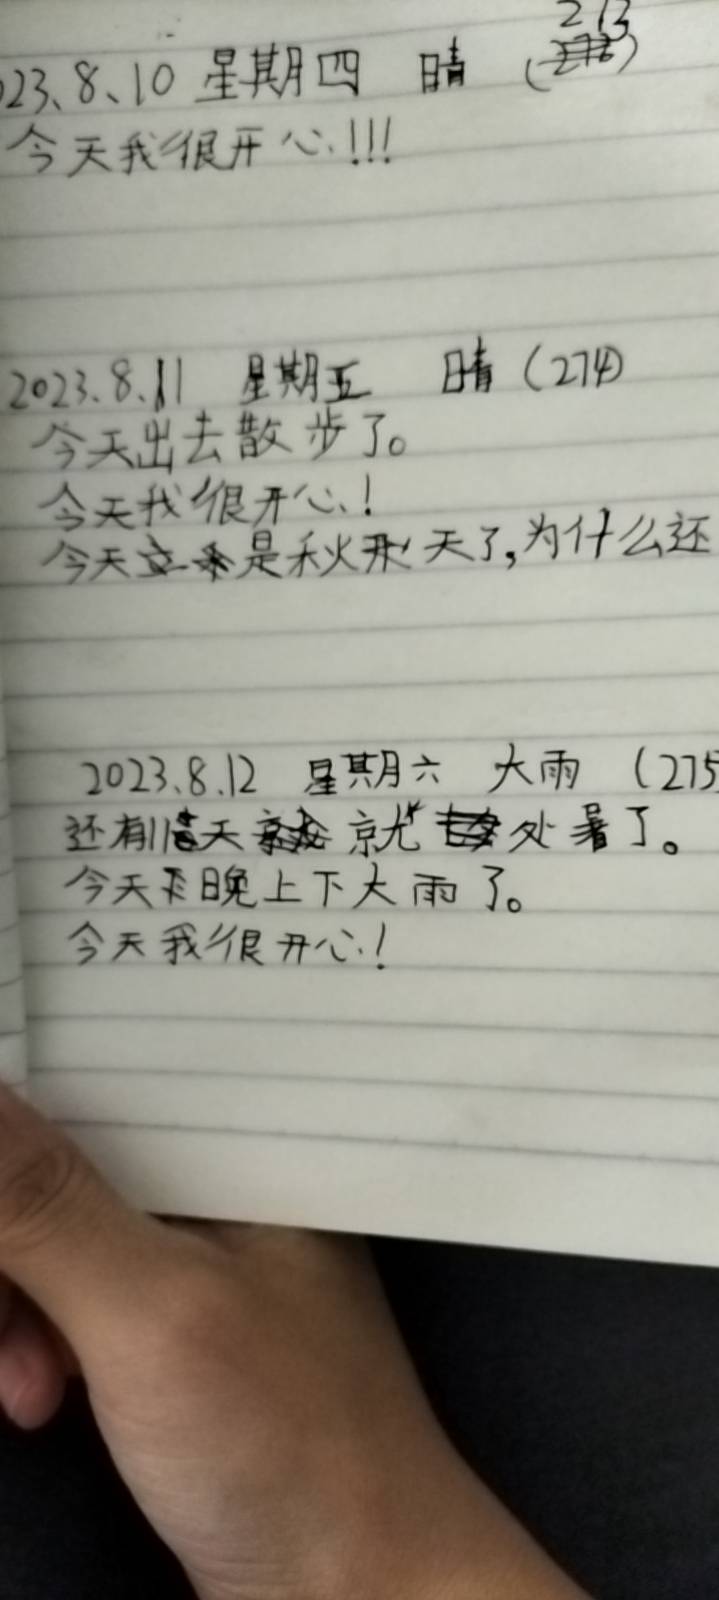 023.8.10 星期四 晴 (273)
今天我很开心!!!
2023.8.11 星期五 晴 (274)
今天出去散步了。
今天我很开心!
今天是秋天了,为什么还
2023.8.12 星期六 大雨 (275
还有11天就处暑了。
今天晚上下大雨了。
今天我很开心!